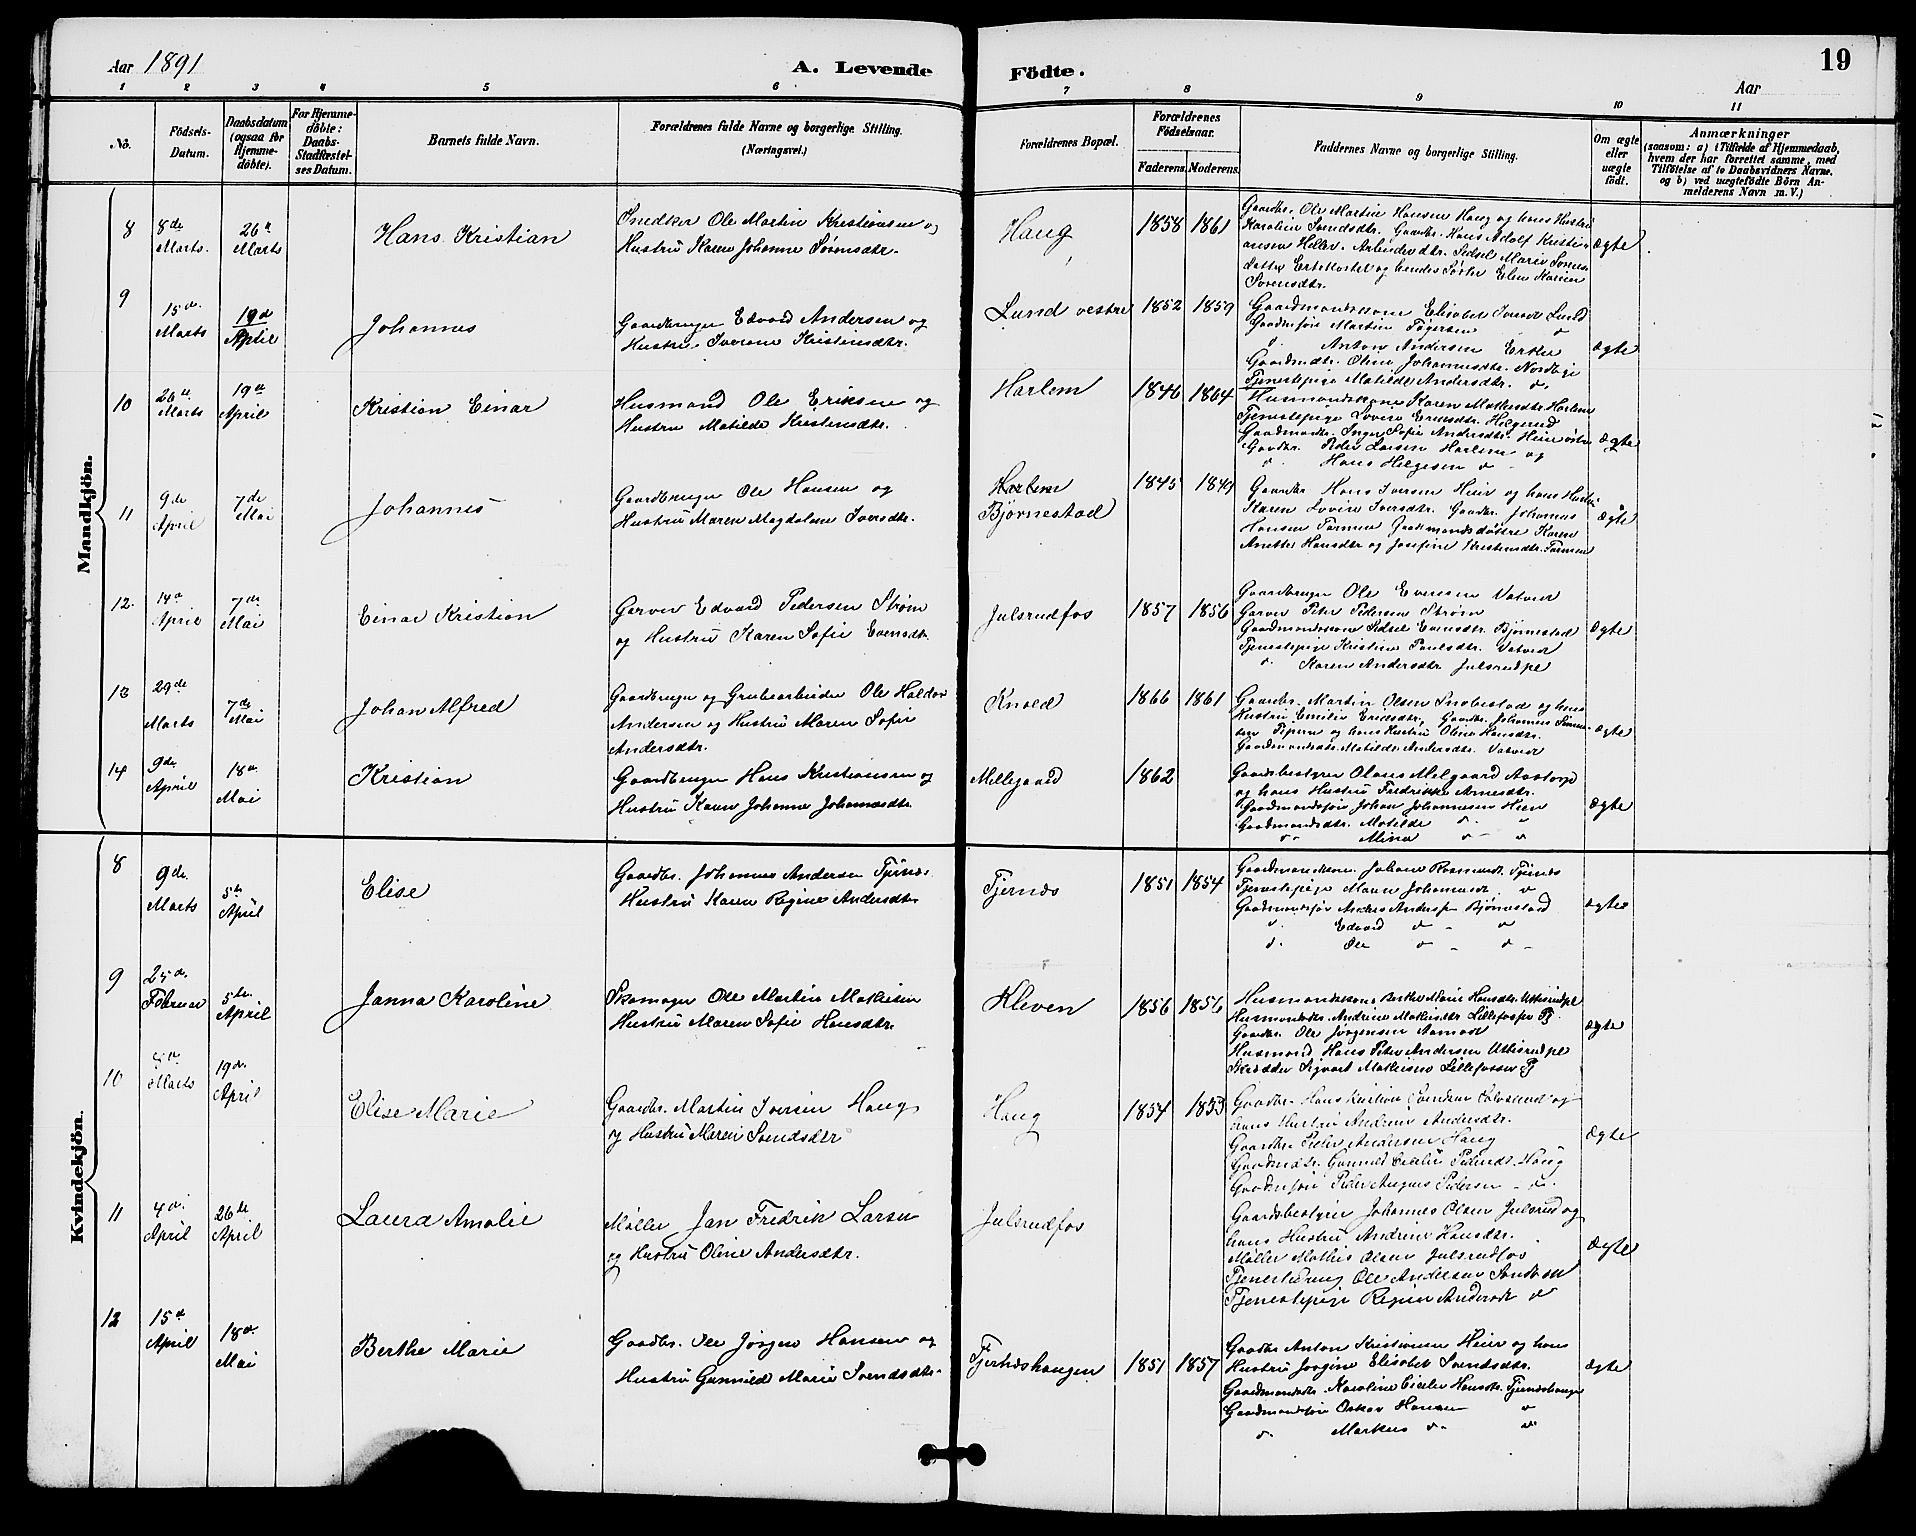 Aar 1891
A. Levende Födte.
19
Aar
1 2 3 4 5 6 7 8 9 10 11
No.
Födsels-Datum.
Daabsdatum (ogsaa for Hjemmedöbte).
For Hjemmedöbte: Daabs-Stadfæstelses Datum.
Barnets fulde Navn.
Forældrenes fulde Navne og borgerlige Stilling. (Næringsvei.)
Forældrenes Bopæl.
Forældrenes Födselsaar.
Faderens. Moderens.
Faddernes Navne og borgerlige Stilling.
Om ægte eller uægte födt.
Anmærkninger
(saasom: a) i Tilfælde af Hjemmedaab, hvem der har forrettet samme, med Tilföielse af to Daabsvidners Navne, og b) ved uægtefödte Börn Anmelderens Navn m. V.)
Mandkjön.
8 8de Marts 26de Marts Hans Kristian
Snedker Ole Martin Kristiansen og
Hustru Karen Johanne Sørensdtr.
Haug 1858 1861
Gaardbr. Ole Martin Hansen Haug og hans Hustru
Karoline Svendsdtr. Gaardbr. Hans Adolf Kristi-
ansen
ægte
9 15de Marts 19de April Johannes
Gaardbruger Edvard Andersen og
Hustru Iverine Kristensdtr.
Lund vestre 1852 1859
Gaardmandskone Elisabet Iversdtr Lund
Anton Andersen
Gaardmdtr. Oline Johannesdtr.
Tjenestepige Matilde Andersdtr. do
ægte
10 26de Marts 19de April Kristian Einar
Husmand Ole Eriksen og
Hustru Matilde Kristensdtr.
Harlem 1846 1864
Husmandskone Karen Mathisdtr Harlem
Tjenestepige Lovise Eriksdtr.
Gaardmdtr. Inger Sofie Andersdtr. Heier
Gaardbr. Peder Larsen Harlem og
do Hans Helgesen do
ægte
11 9de April 7de Mai Johannes
Gaardbruger Ole Hansen og
Hustru Maren Magdalene Iversdtr.
Harlem
Bjørnestad 1845 1849
Gaardbr Hans Iversen Heier og hans Hustru
Karen Lovise Iversdtr. Gaardbr. Johannes
Hansen Gaardmandsdøttre Karen
Anette Hansdtr og Josefine Kristensdtr.
ægte
12. 14de April 7de Mai Einar Kristian
Garver Edvard Pedersen Strøm
og Hustru Karen Sofie Evensdtr.
Julsrudfos 1857 1856
Gaardbruger Ole Evensen
Garver Peter Pedersen Strøm
Gaardmandskone Sidsel Evensdtr. Bjørnestad
Tjenestepige Kristine Paulsdtr.
do Karen Andersdtr Julsrudpl
ægte
13 29de Marts 7de Mai Johan Alfred
Gaardbruger og Grubearbeider Ole Haldor
Andersen og Hustru Maren Sofie
Andersdtr.
Knold 1866 1861
Gaardbr. Martin Olsen og hans
Hustru Emilie Eriksdtr, Gaardbr. Johannes
og hans Hustru Oline Hansdtr.
Gaardmandsdtr. Matilde Andersdtr.
ægte
14 9de April 18de Mai Kristian
Gaardbruger Hans Kristiansen og
Hustru Karen Johanne Johannesdtr
Millegaard 1862
Gaardsbestyrer Olaus Melgaard
og hans Hustru Fredrikke Arnesdtr.
Gaardmandssøn Johan Johannesen
Gaardmandsdtr. Matilde do "
do Mina do "
ægte
Kvindekjön.
8 9de Marts 5te April Elise
Gaardbr. Johannes Andersen Tjernæs
Hustru Karen Regine Andersdtr
Tjernæs 1851 1854
Gaardmandskone Johane Tjernæs
Tjenestepige Maren Johannesdtr. do
Gaardmandssøn Anders Andersen Bjørnestad
do Edvard do do
do Ole do do
ægte
9 25de Februar 5te April Janna Karoline
Skomager Ole Martin Mathisen
Hustru Maren Sofie Hansdtr.
Kleven 1856 1856
Husmandskone Berthe Marie Hansdtr
Husmandsdtr. Andrine Mathisdtr Lillefosse
Gaardbr. Ole Jørgensen Aamodt
Husmand Hans Peter Andersen
Skrædder Sigvart Mathisen Lillefossen
ægte
10 Marts 19de April Elise Marie
Gaardbr. Martin Iversen Haug
og Hustru Maren Svendsdtr
Haug 1854 1853
Gaardbr Hans Kristian og
hans Hustru Andrine Andersdtr.
Gaardbr Peder Andersen Haug
Gaardmdtr. Gunnild Cicilie Pedersdtr. Haug
Gaardmsøn Peder August Pedersen do
ægte
11 4de April 26de April Laura Amalie
Møller Jan Fredrik Larsen
og Hustru Oline Andersdtr.
Julsrudfos
Gaardsbestyrer Johannes Olsen Julsrud og
hans Hustru Andrine Hansdtr.
Møller Mathis Olsen Julsrudfos
Tjenestedreng Ole Andersen
Tjenestepige Regine Andersdtr do
ægte
12 15de April 18de Mai Berthe Marie
Gaardbr. Ole Jørgen Hansen og
Hustru Gunnild Marie Svendsdtr.
Tjernæshaugen 1851 1857
Gaardbr Anton Kristiansen Heier og hans
Hustru Jørgine Elisabet Svendsdtr.
Gaardmandsdtr. Karoline Cicilie Hansdtr. Tjernæshaugen
Gaardmandssøn Oskar Hansen do
do Markus do do
ægte